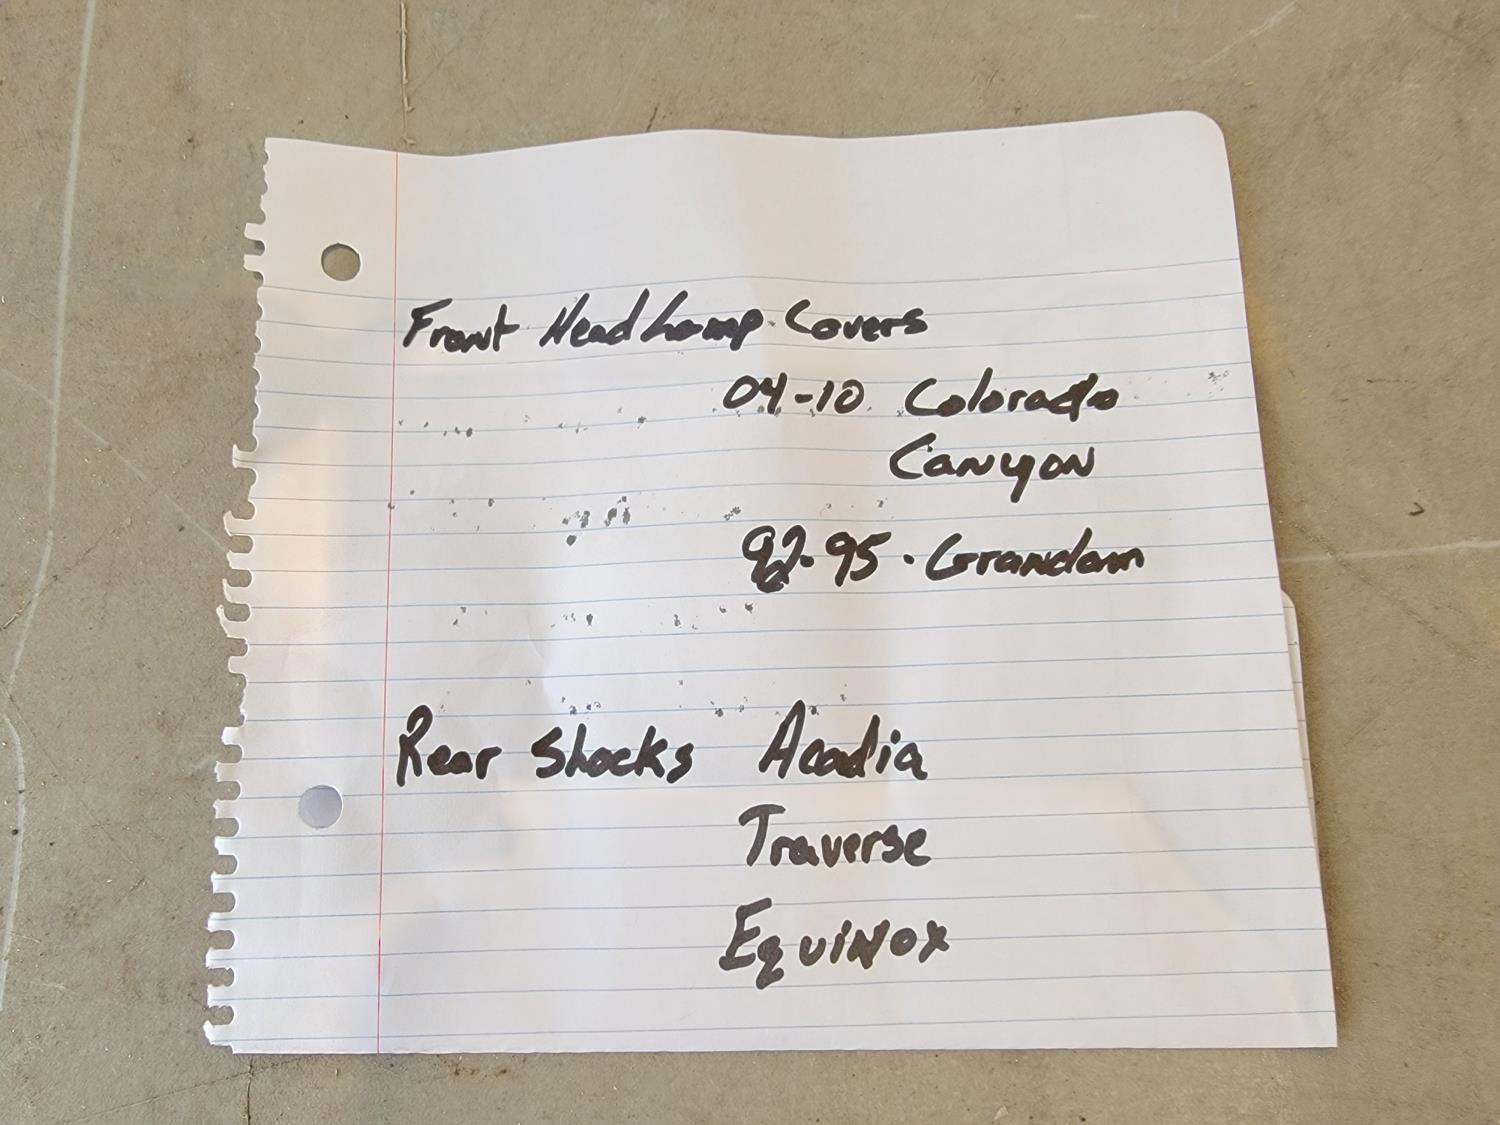 Front HeadLamp Covers
04-10 Colorado
Canyon
92-95 . Grandam
Rear Shocks Acadia
Traverse
Equinox